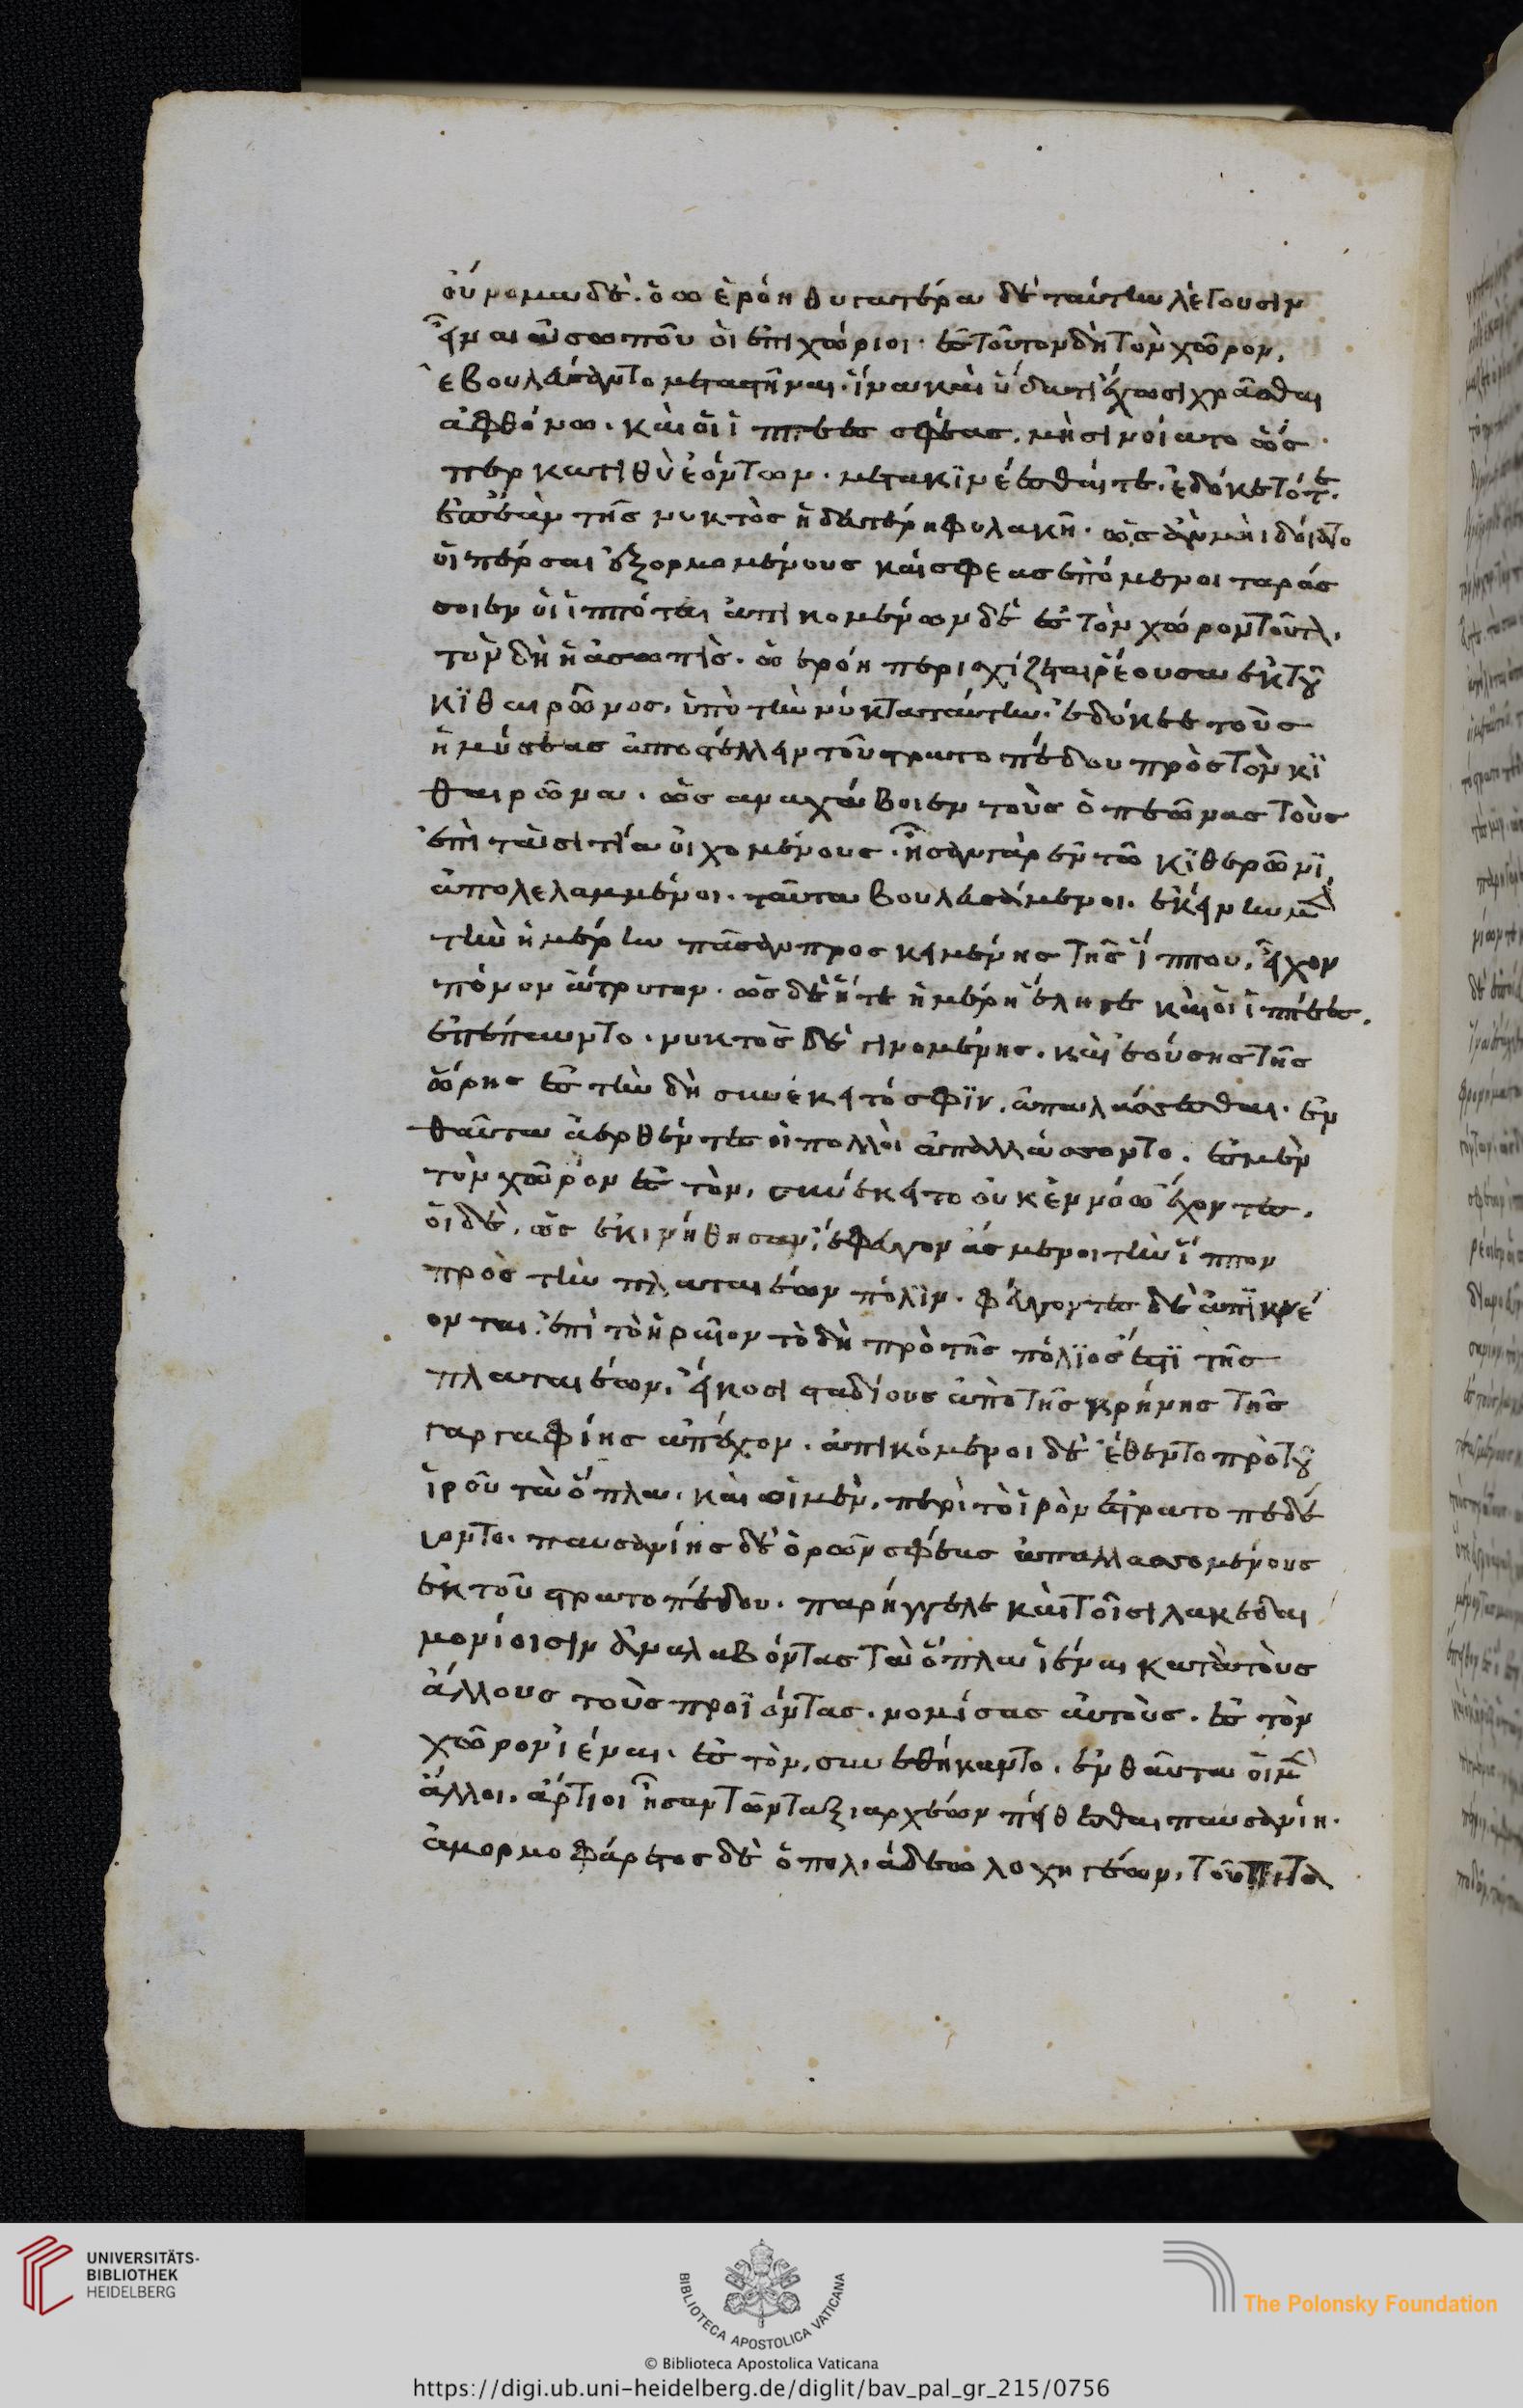 οὔνομα δέ. ὀωερόη θυγατέρα δὲ ταύτην λέγουσιν
εἶναι ἀσωποῦ οἱ ἐπιχώριοι. ἐς τοῦτον δὴ τὸν χῶρον,
ἐβουλεύσαντο μεταστῆναι. ἵνα καὶ ὕδατι ἔχωσι χρᾶσθαι
ἀφθόνω. καὶ οἱ ἱππέες σφέας, μὴ σινοίατο ὥς
περ κατιθὺ ἐόντων. μετακινέεσθαί τε. ἐδόκε τότε.
ἐπεὰν τῆς νυκτὸς ἡ δευτέρη φυλακῆ. ὡς ἂν μὴ ἰδοίατο
οἱ πέρσαι ἐξορμομένους καί σφεας ἑπόμενοι ταράσ
σοιεν οἱ ἱππόται ἀπικομένων δὲ ἐς τὸν χώρον τοῦτον,
τὸν δὴ ἡ ἀσωπὶς. ὠερόη περισχίζεται ῥέουσα ἐκ τοῦ
κϊθαιρῶνος. ὑπὸ τὴν νύκτα ταύτην. ἐδόκεε τοὺς
ἡμίσεας ἀποστέλλειν τοῦ στρατοπέδου πρὸς τὸν κϊ
θαιρῶνα. ὡς αναλάβοιεν τοὺς ὀπεῶνας τοὺς
ἐπὶ τὰ σιτία οἰχομένους. ἦσαν γὰρ ἐν τῶ κϊθερῶνϊ,
ἀπολελαμμένοι. ταῦτα βουλευσάμενοι. ἐκείνην μὲν
τὴν ἡμέρην πᾶσαν προσκειμένης τῆς ἵππου, εἶχον
πόνον ἄτρυτον. ὡς δὲ ἥτε ἡμέρη ἔληγε καὶ οἱ ἱππέες.
ἐπέπαυντο. νυκτὸς δὲ γινομένης. καὶ ἐούσης τῆς
ὥρης ἐς τὴν δὴ συνέκειτό σφϊν, ἀπαλάσσεσθαι. ἐν
θαῦτα ἀερθέντες οἱ πολλοὶ ἀπαλλάσσοντο. ἐς μὲν
τὸν χῶρον ἐς τὸν, συνέκειτο οὐκ ἐν νόω ἔχοντες.
οἱ δὲ, ὡς ἐκινήθησαν, ἔφευγον ἄσμενοι τὴν ἵππον
πρὸς τὴν πλαταιέων πόλϊν. φεύγοντες δὲ ἀπϊκνέ
ονται. ἐπὶ τὸ ἡραῖον τὸ δὴ πρὸ τῆς πόλϊος ἐστϊ τῆς
πλαταιέων. εἴκοσι σταδίους ἀπὸ τῆς κρήνης τῆς
γαργαφίης ἀπέχον. ἀπικόμενοι δὲ ἔθεντο πρὸ τοῦ
ἱροῦ τὰ ὅπλα. καὶ οἱ μὲν, περὶ τὸ ἱρὸν ἐστρατοπεδεύ
οντο. παυσανίης δὲ ὁρῶν σφέας ἀπαλλασσομένους
ἐκ τοῦ στρατοπέδου. παρήγγελε καὶ τοῖσι λακεδαι
μονίοισιν ἀναλαβόντας τὰ ὅπλα ἰέναι κατὰ τοὺς
ἄλλους τοὺς προϊόντας. νομίσας αὐτοὺς. ἐς τὸν
χῶρον ἰέναι. ἐς τὸν, συνεθήκαντο. ἐνθαῦτα οἱ μὲν
ἄλλοι. ἄρτιοι ἦσαν τῶν ταξιαρχέων πείθεσθαι παυσανίη.
ἀμομφάρετος δὲ ὁ πολιάδεω λοχηγέων, τοῦ πιτα
UNIVERSITÄTS-
BIBLIOTHEK
HEIDELBERG
BIBLIOTECA APOSTOLICA VATICANA
The Polonsky Foundation
© Biblioteca Apostolica Vaticana
https://digi.ub.uni-heidelberg.de/diglit/bav_pal_gr_215/0756